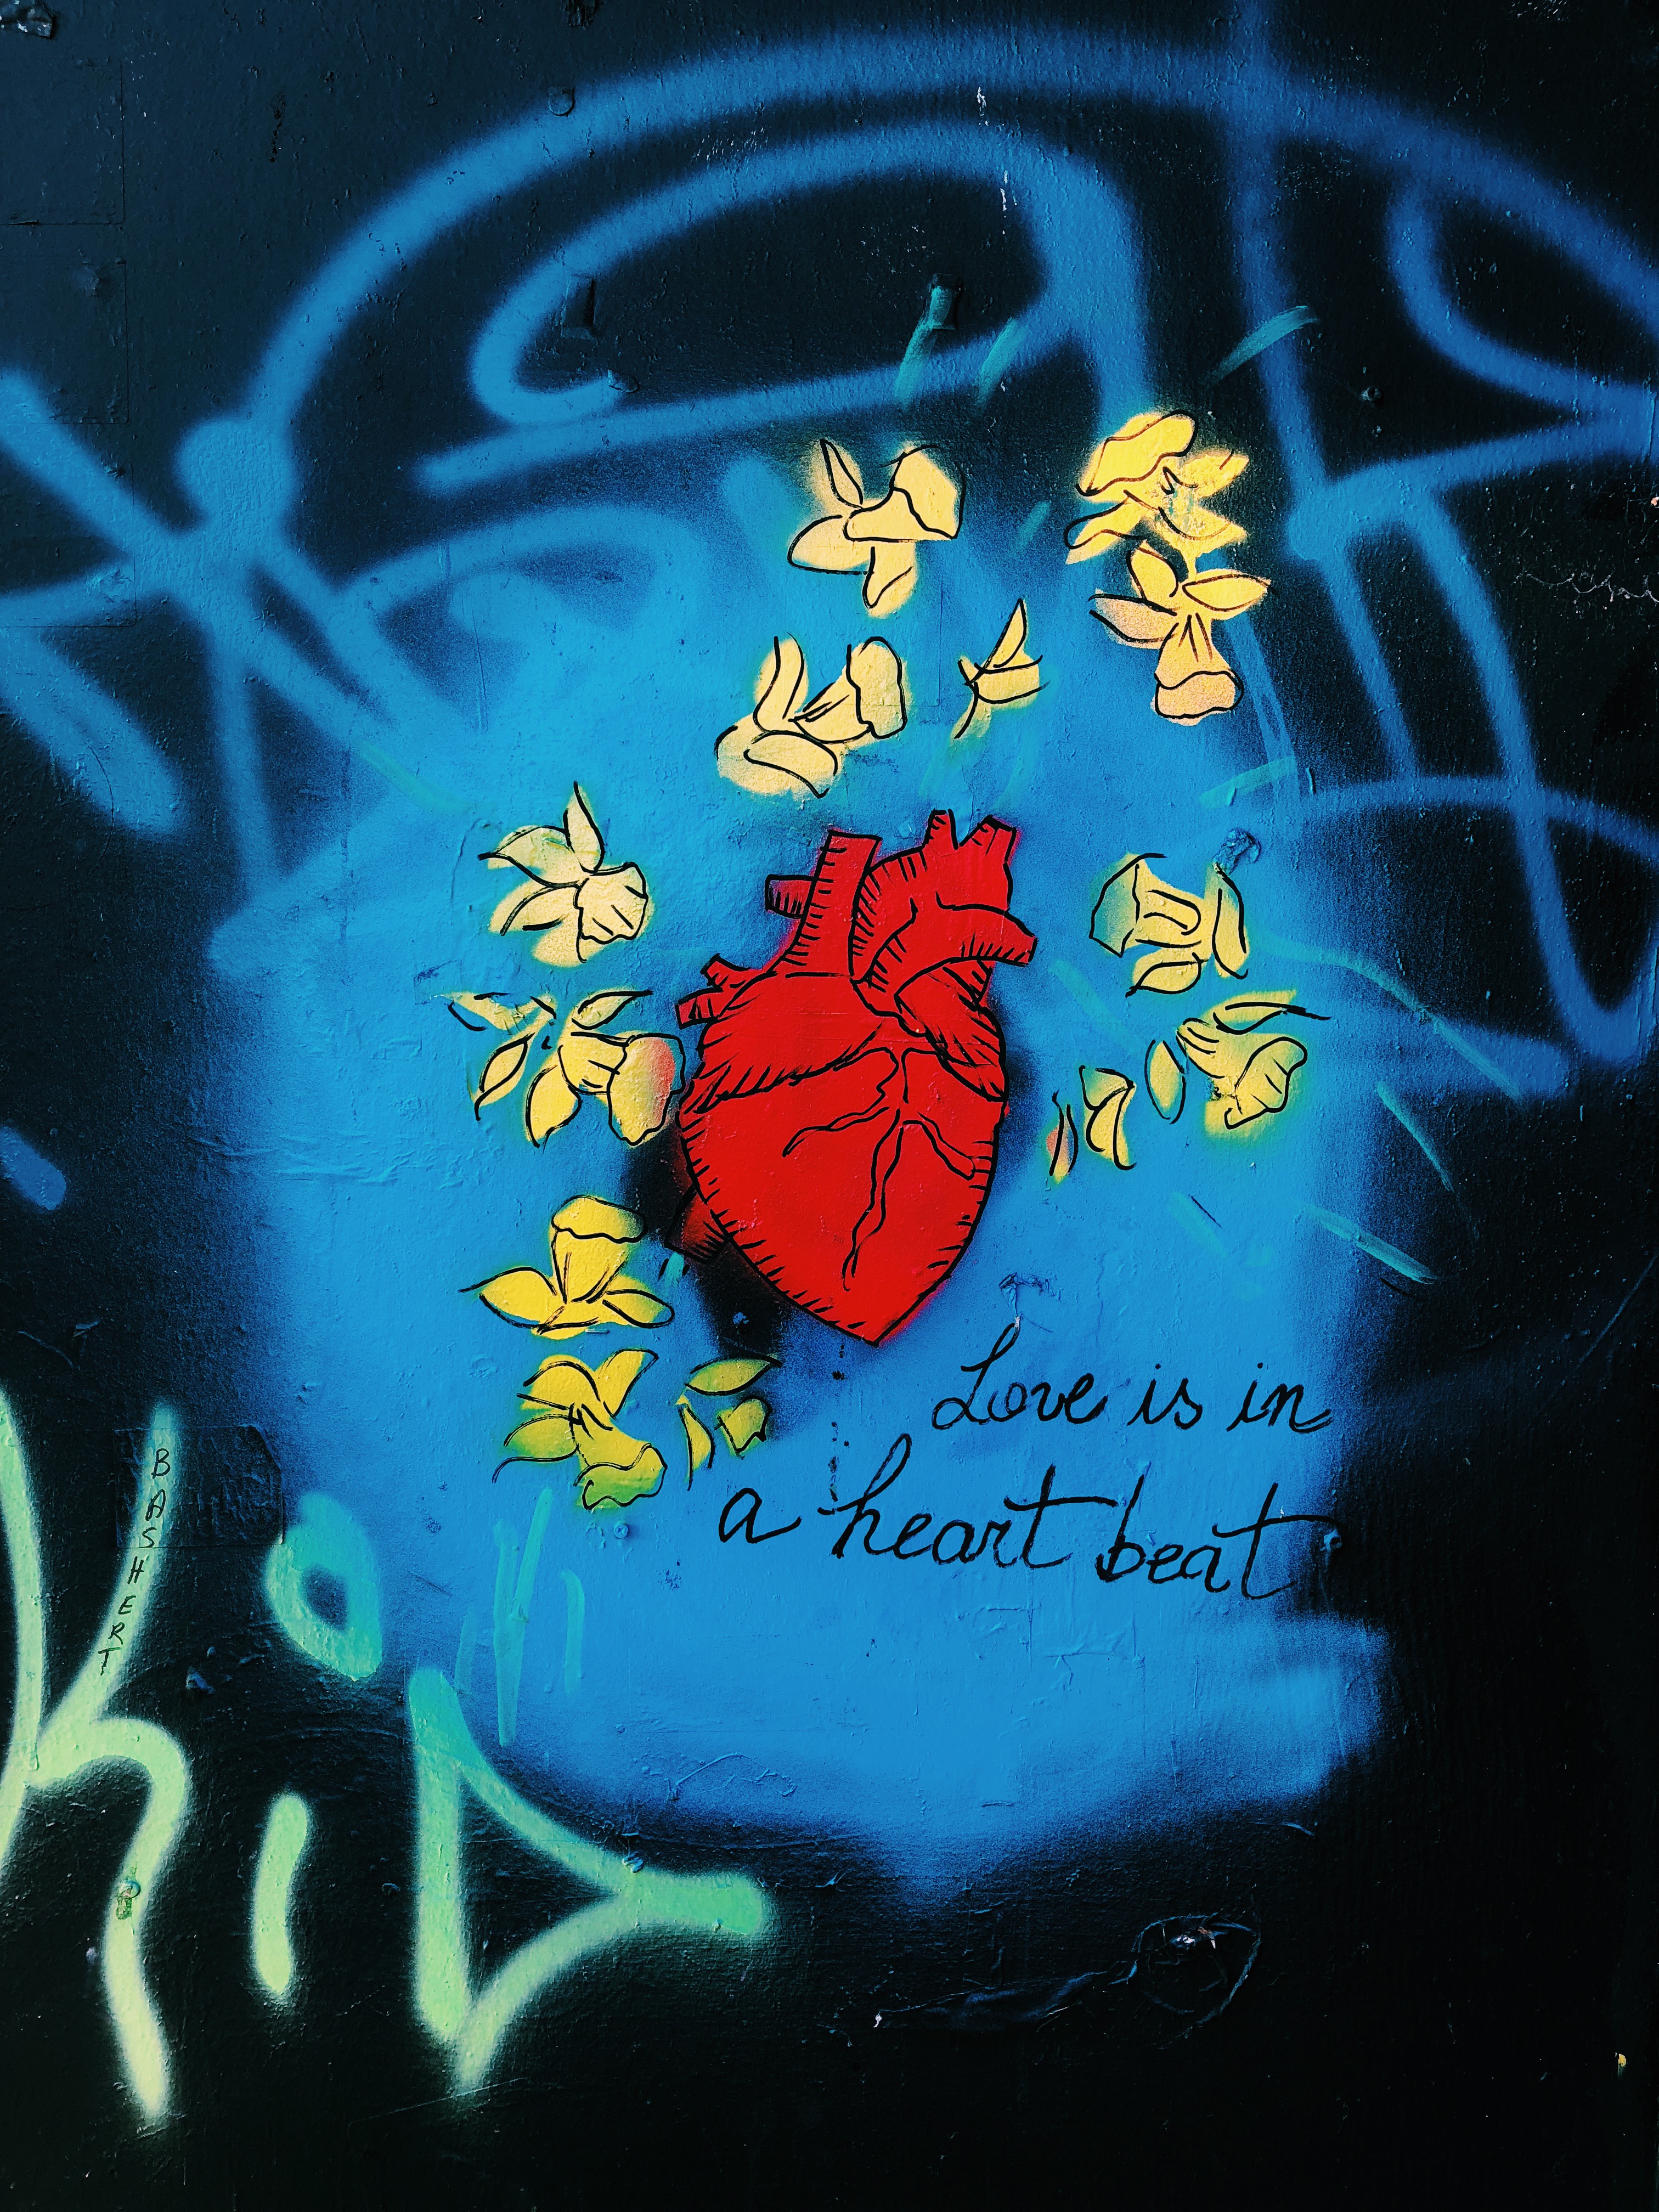 Love is in
a heart beat
BASHERT
KiD